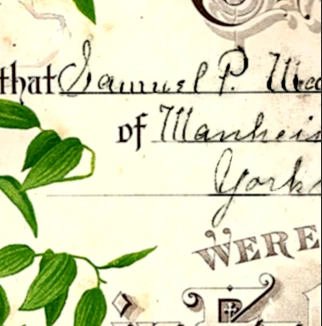 that Samuel P.
of Manheim
York
WERE